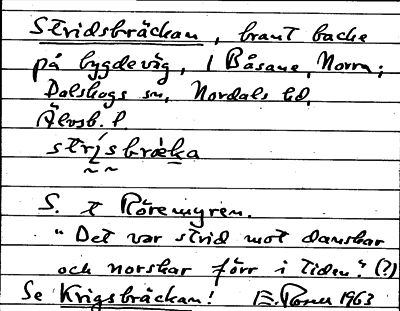 Stridsbräckan, brant backe
på bygdeväg, i Båsane, Norra;
Dalskogs sn, Nordals hd,
Älvsb. l.
strisbräka
S. t Röremyren.
"Det var strid mot danskar
och norskar förr i tiden." (?)
Se Krigsbräckan! E. 1963